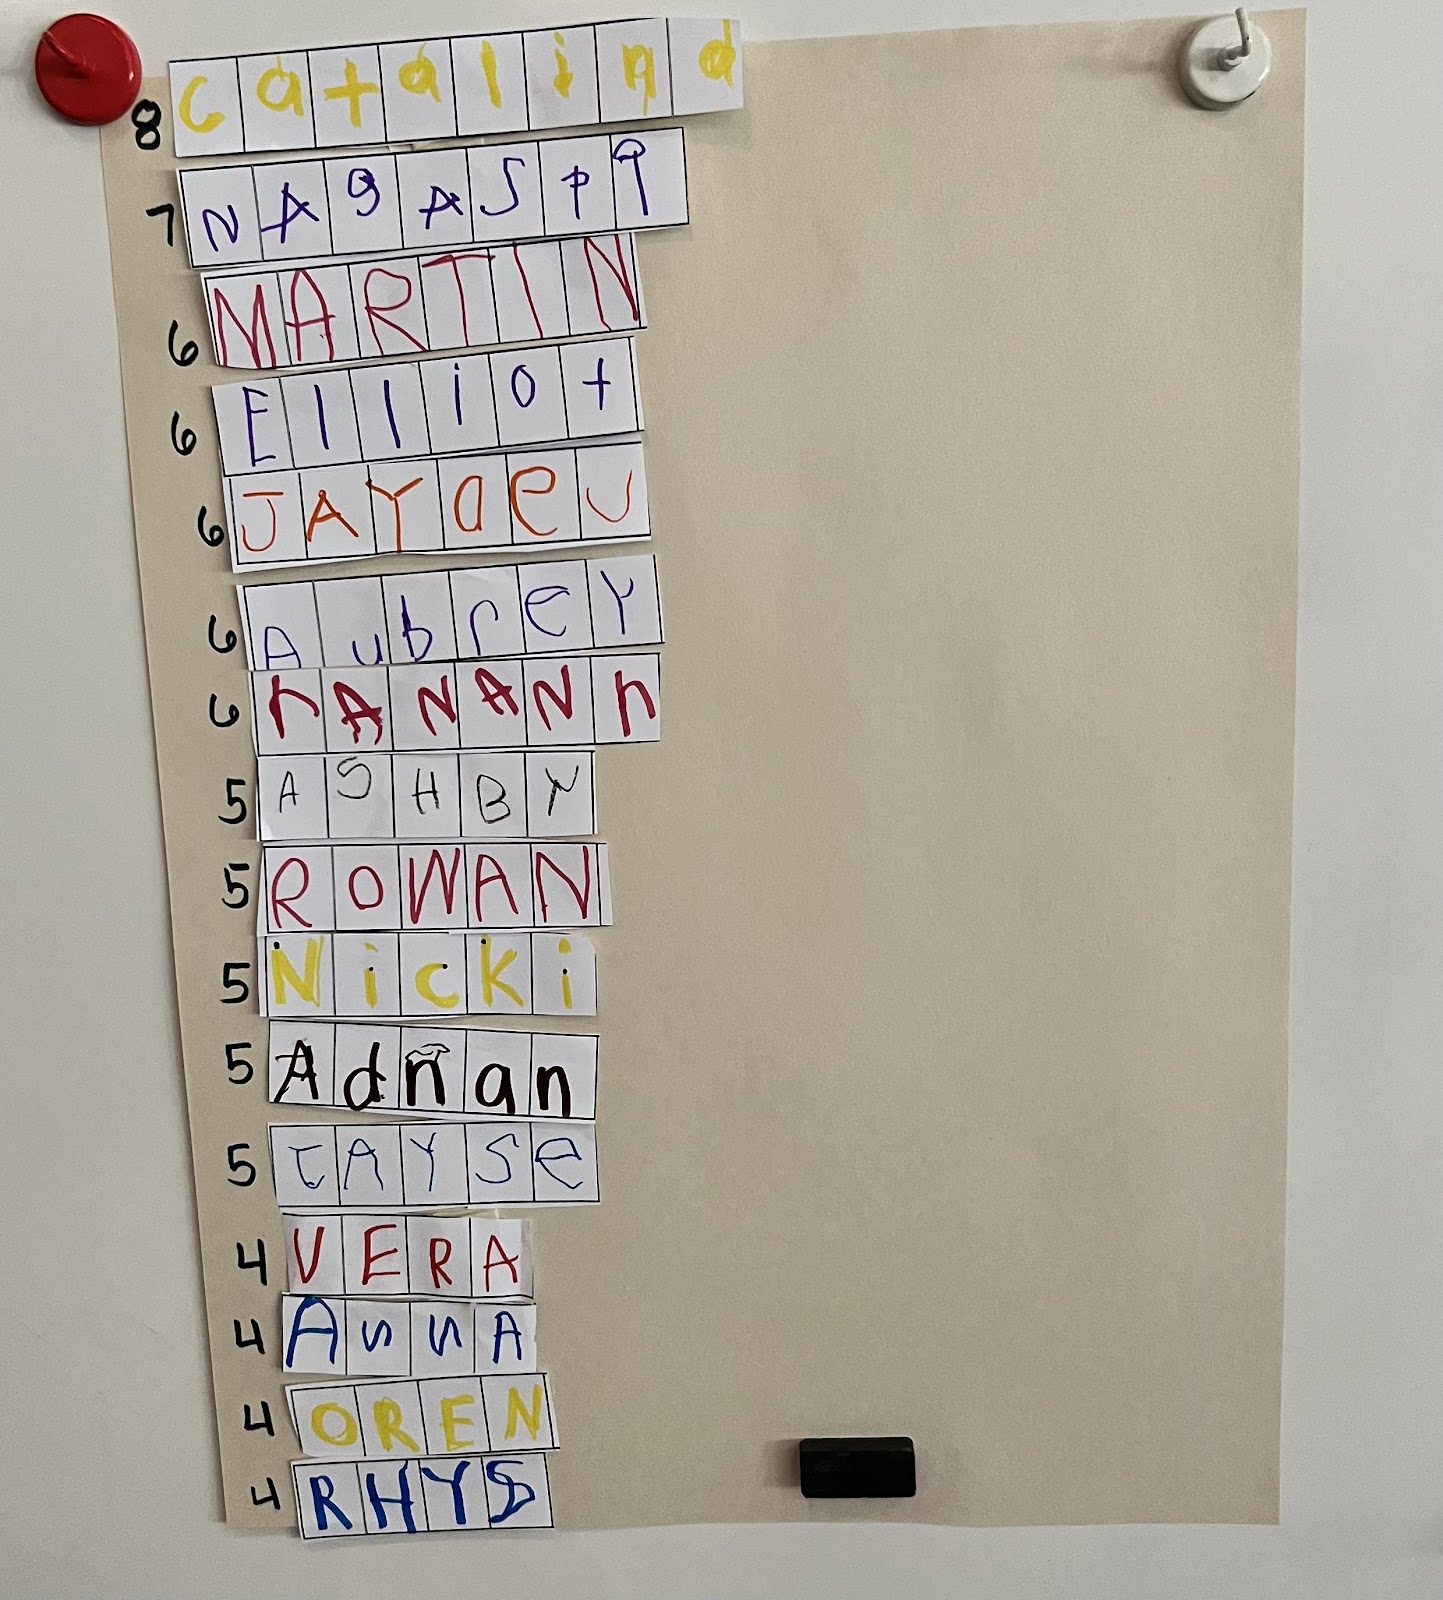 8 catalina
7 NAgASPI
6 MARTIN
6 Elliot
6 JAYdeu
6 AubreY
6 rANANn
5 ASHBY
5 ROWAN
5 Nicki
5 Adnan
5 JAYSe
4 VERA
4 AnnA
4 OREN
4 RHYS